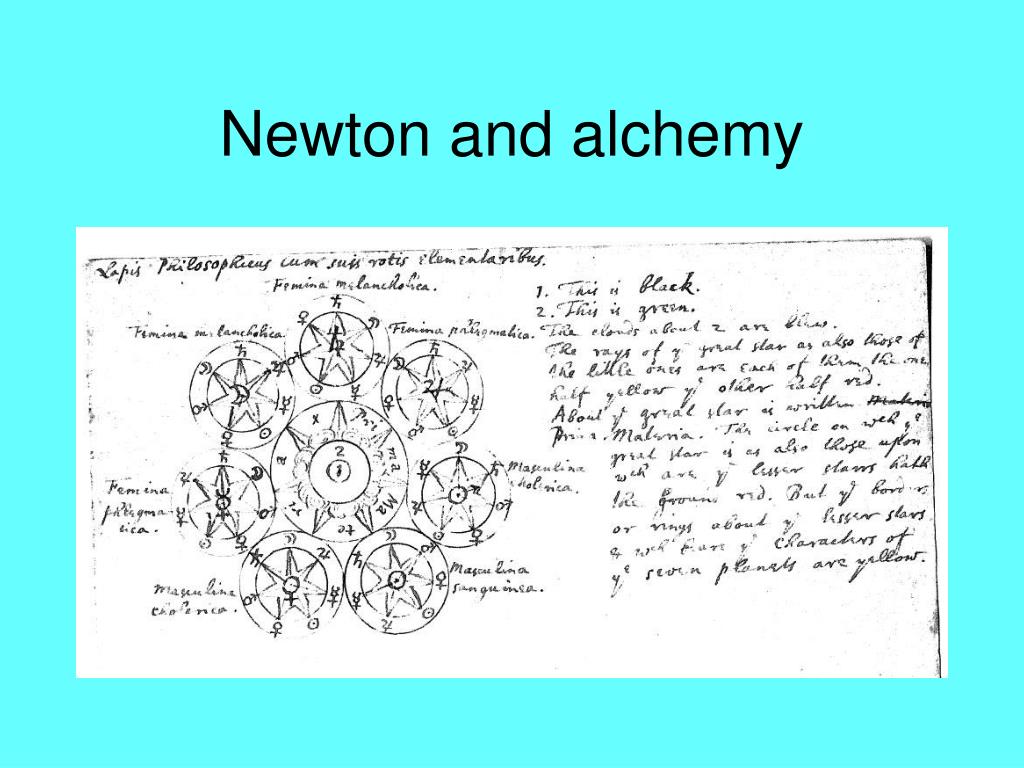 Newton and alchemy
Lapis Philosophicus cum suis rotis elementaribus.
Femina melancholica.
Femina melancholica
Femina phlegmatica.
Femina
phlegma-
tica.
Masculina
cholerica.
Masculina
cholerica.
Masculina
sanguinea.
2
1
1. This is black.
2. This is green.
The clouds about 2 are blew.
The rays of yᵉ great star as also those of
the little ones are each of them the one
half yellow yᵉ other half red.
About yᵉ great star is written
Prima Materia. The circle on wch yᵉ
great star is as also those upon
wch are yᵉ lesser starrs hath
the ground red. But yᵉ borders
or rings about yᵉ lesser stars
& wch bare yᵉ characters of
yᵉ seven planets are yellow.